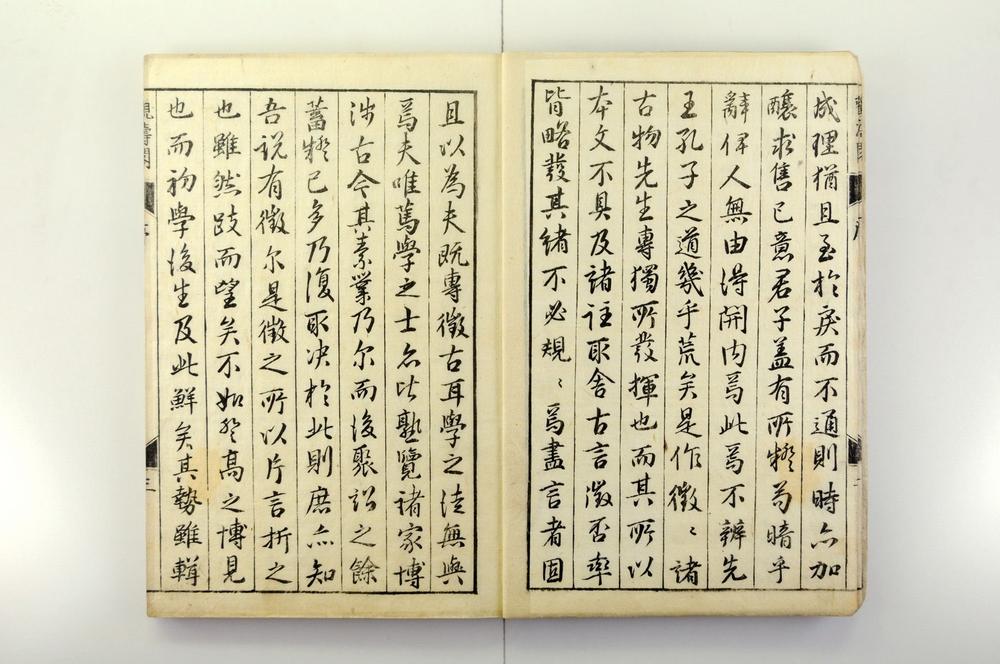 成理猶且至於戾而不通則時亦加
釀求售已意君子盖有所釋為暗乎
辭俾人無由得開内焉此焉不辨先
王孔子之道幾乎荒矣是作徵〻諸
古物先生專獨所發揮也而其所以
本文不具及諸註取舍古言徵否率
皆略發其緒不必規〻焉盡言者固
且以為夫既專徵古耳學之法無與
焉夫唯篤學之士亦必熟覽諸家博
渉古今其素業乃尔而後聚訟之餘
蓄疑已多乃復取决於此則庶亦知
吾説有徵尔是徵之所以片言折之
也雖然跂而望矣不如登高之博見
也而初學後生及此鮮矣其勢雖輯
觀濤閣
序
三